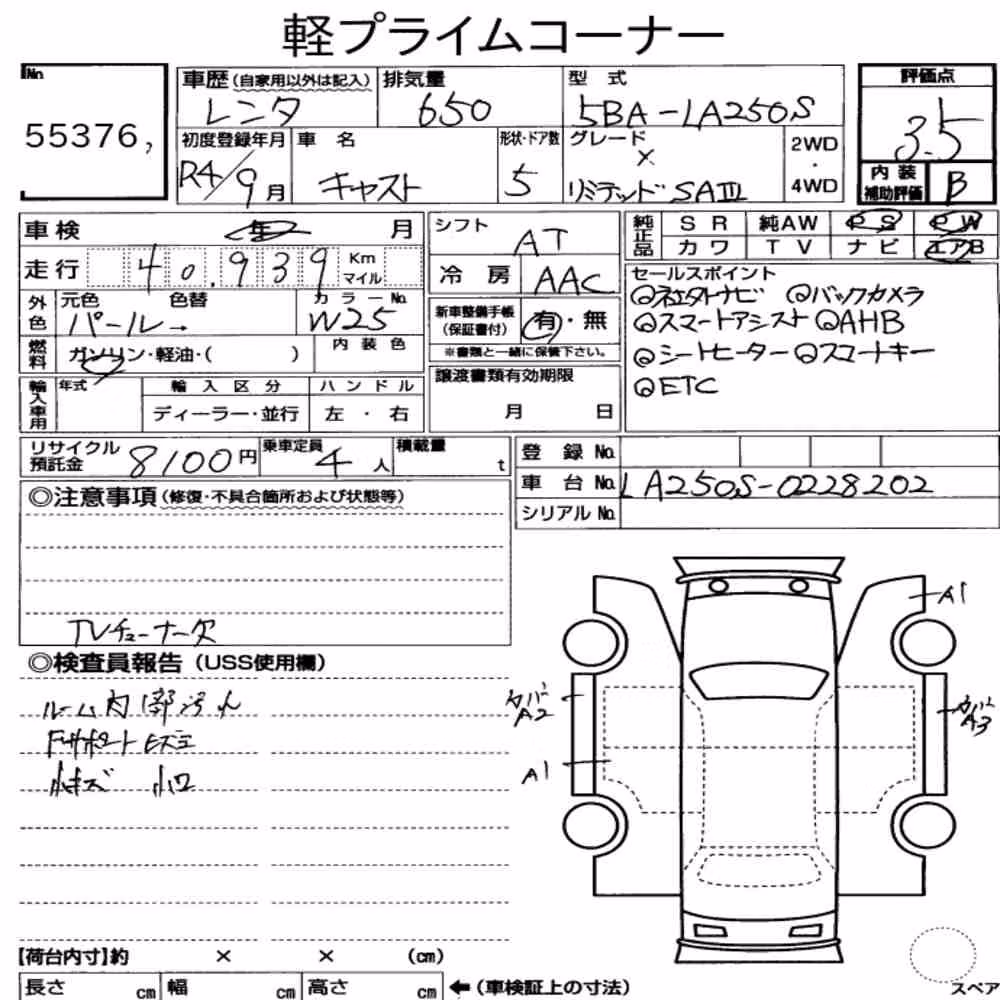 軽プライムコーナー
No
55376,
車歴(自家用以外は記入)
レンタ
排気量
650
型式
5BA-LA250S
評価点
3.5
初度登録年月
R4/9月
車名
キャスト
形状・ドア数
5
グレード
X
リミテッド SAⅢ
2WD
・
4WD
内装
補助評価
B
車検 年 月
走行 40,939 Km
マイル
外色
元色 色替
パール→
カラーNo.
W25
燃料
ガソリン・軽油・( )
内装色
輸入車用
年式
輸入区分
ディーラー・並行
ハンドル
左・右
シフト
AT
冷房
AAC
新車整備手帳
(保証書付)
有・無
※書類と一緒に保管下さい。
譲渡書類有効期限
月 日
純正品
SR 純AW PS PW
カワ TV ナビ エアB
セールスポイント
◎社外ナビ ◎バックカメラ
◎スマートアシスト ◎AHB
◎シートヒーター ◎スマートキー
◎ETC
リサイクル
預託金
8100円
乗車定員
4人
積載量
t
登録No.
車台No. LA250S-0228202
シリアルNo.
◎注意事項(修復・不具合箇所および状態等)
TVチューナー欠
◎検査員報告(USS使用欄)
ルーム内 内部汚れ
Fサポートヒズミ
小キズ 小凹
A1
カバー
A2
カバー
A3
A1
【荷台内寸】約 × × (cm)
長さ cm 幅 cm 高さ cm ←(車検証上の寸法)
スペア